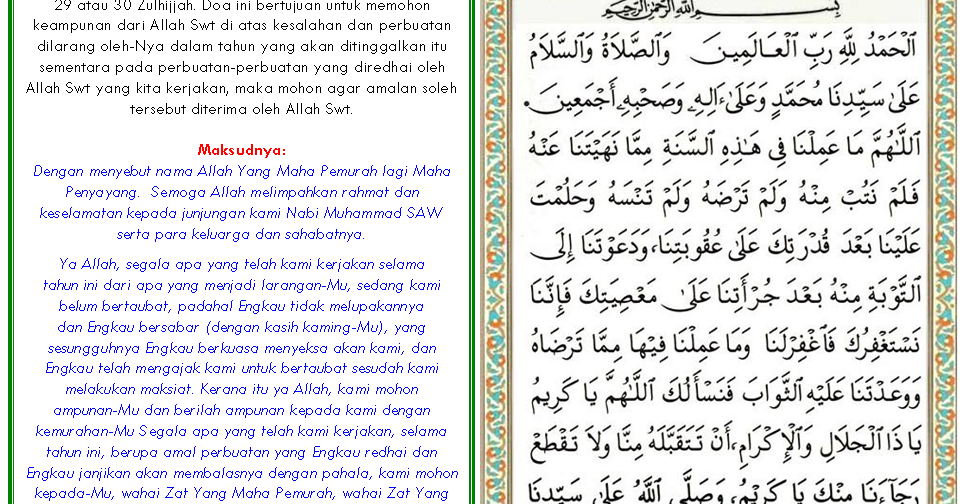 29 atau 30 Zulhijjah. Doa ini bertujuan untuk memohon
keampunan dari Allah Swt di atas kesalahan dan perbuatan
dilarang oleh-Nya dalam tahun yang akan ditinggalkan itu
sementara pada perbuatan-perbuatan yang diredhai oleh
Allah Swt yang kita kerjakan, maka mohon agar amalan soleh
tersebut diterima oleh Allah Swt.
Maksudnya:
Dengan menyebut nama Allah Yang Maha Pemurah lagi Maha
Penyayang. Semoga Allah melimpahkan rahmat dan
keselamatan kepada junjungan kami Nabi Muhammad SAW
serta para keluarga dan sahabatnya.
Ya Allah, segala apa yang telah kami kerjakan selama
tahun ini dari apa yang menjadi larangan-Mu, sedang kami
belum bertaubat, padahal Engkau tidak melupakannya
dan Engkau bersabar (dengan kasih kaming-Mu), yang
sesungguhnya Engkau berkuasa menyeksa akan kami, dan
Engkau telah mengajak kami untuk bertaubat sesudah kami
melakukan maksiat. Kerana itu ya Allah, kami mohon
ampunan-Mu dan berilah ampunan kepada kami dengan
kemurahan-Mu Segala apa yang telah kami kerjakan, selama
tahun ini, berupa amal perbuatan yang Engkau redhai dan
Engkau janjikan akan membalasnya dengan pahala, kami mohon
kepada-Mu, wahai Zat Yang Maha Pemurah, wahai Zat Yang
بِسْمِ اللَّهِ الرَّحْمَٰنِ الرَّحِيمِ
اَلْحَمْدُ لِلَّهِ رَبِّ الْعَالَمِينَ وَالصَّلَاةُ وَالسَّلَامُ
عَلَىٰ سَيِّدِنَا مُحَمَّدٍ وَعَلَىٰ ءَالِهِ وَصَحْبِهِ أَجْمَعِينَ.
اَللَّهُمَّ مَا عَمِلْنَا فِي هَٰذِهِ السَّنَةِ مِمَّا نَهَيْتَنَا عَنْهُ
فَلَمْ نَتُبْ مِنْهُ وَلَمْ تَرْضَهُ وَلَمْ تَنْسَهُ وَحَلُمْتَ
عَلَيْنَا بَعْدَ قُدْرَتِكَ عَلَىٰ عُقُوبَتِنَا، وَدَعَوْتَنَا إِلَى
التَّوْبَةِ مِنْهُ بَعْدَ جُرْأَتِنَا عَلَىٰ مَعْصِيَتِكَ فَإِنَّنَا
نَسْتَغْفِرُكَ فَاغْفِرْلَنَا وَمَا عَمِلْنَا فِيهَا مِمَّا تَرْضَاهُ
وَوَعَدْتَنَا عَلَيْهِ الثَّوَابَ فَنَسْأَلُكَ اللَّهُمَّ يَا كَرِيمُ
يَا ذَا الْجَلَالِ وَالْإِكْرَامِ، أَنْ تَتَقَبَّلَهُ مِنَّا وَلَا تَقْطَعْ
رَجَاءَنَا مِنْكَ يَا كَرِيمُ، وَصَلَّى اللَّهُ عَلَىٰ سَيِّدِنَا